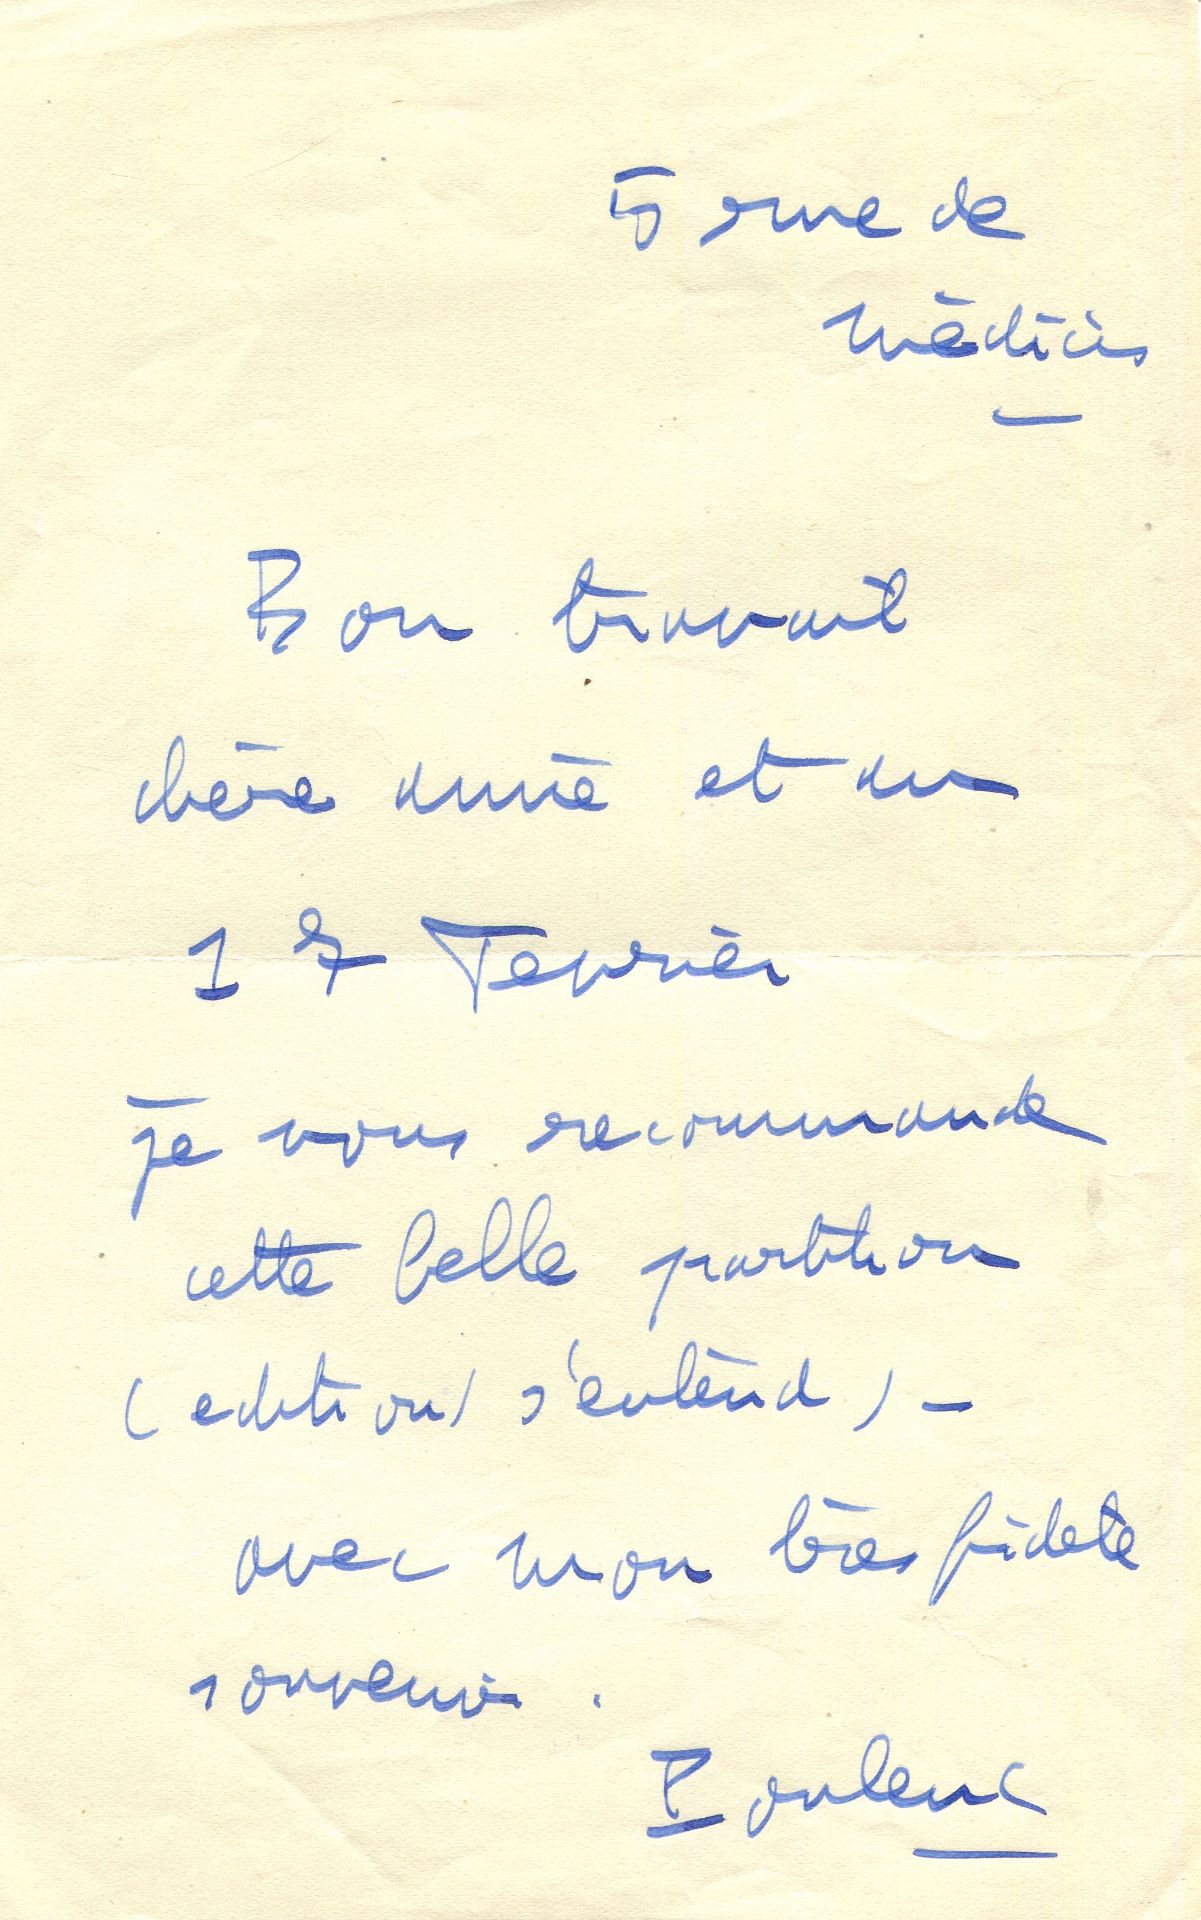 5 rue de
Médicis
Bon travail
chère amie et au
17 Fevrier
je vous recommande
cette belle partition
(edition s'entend) –
avec mon très fidele
souvenir.
Poulenc